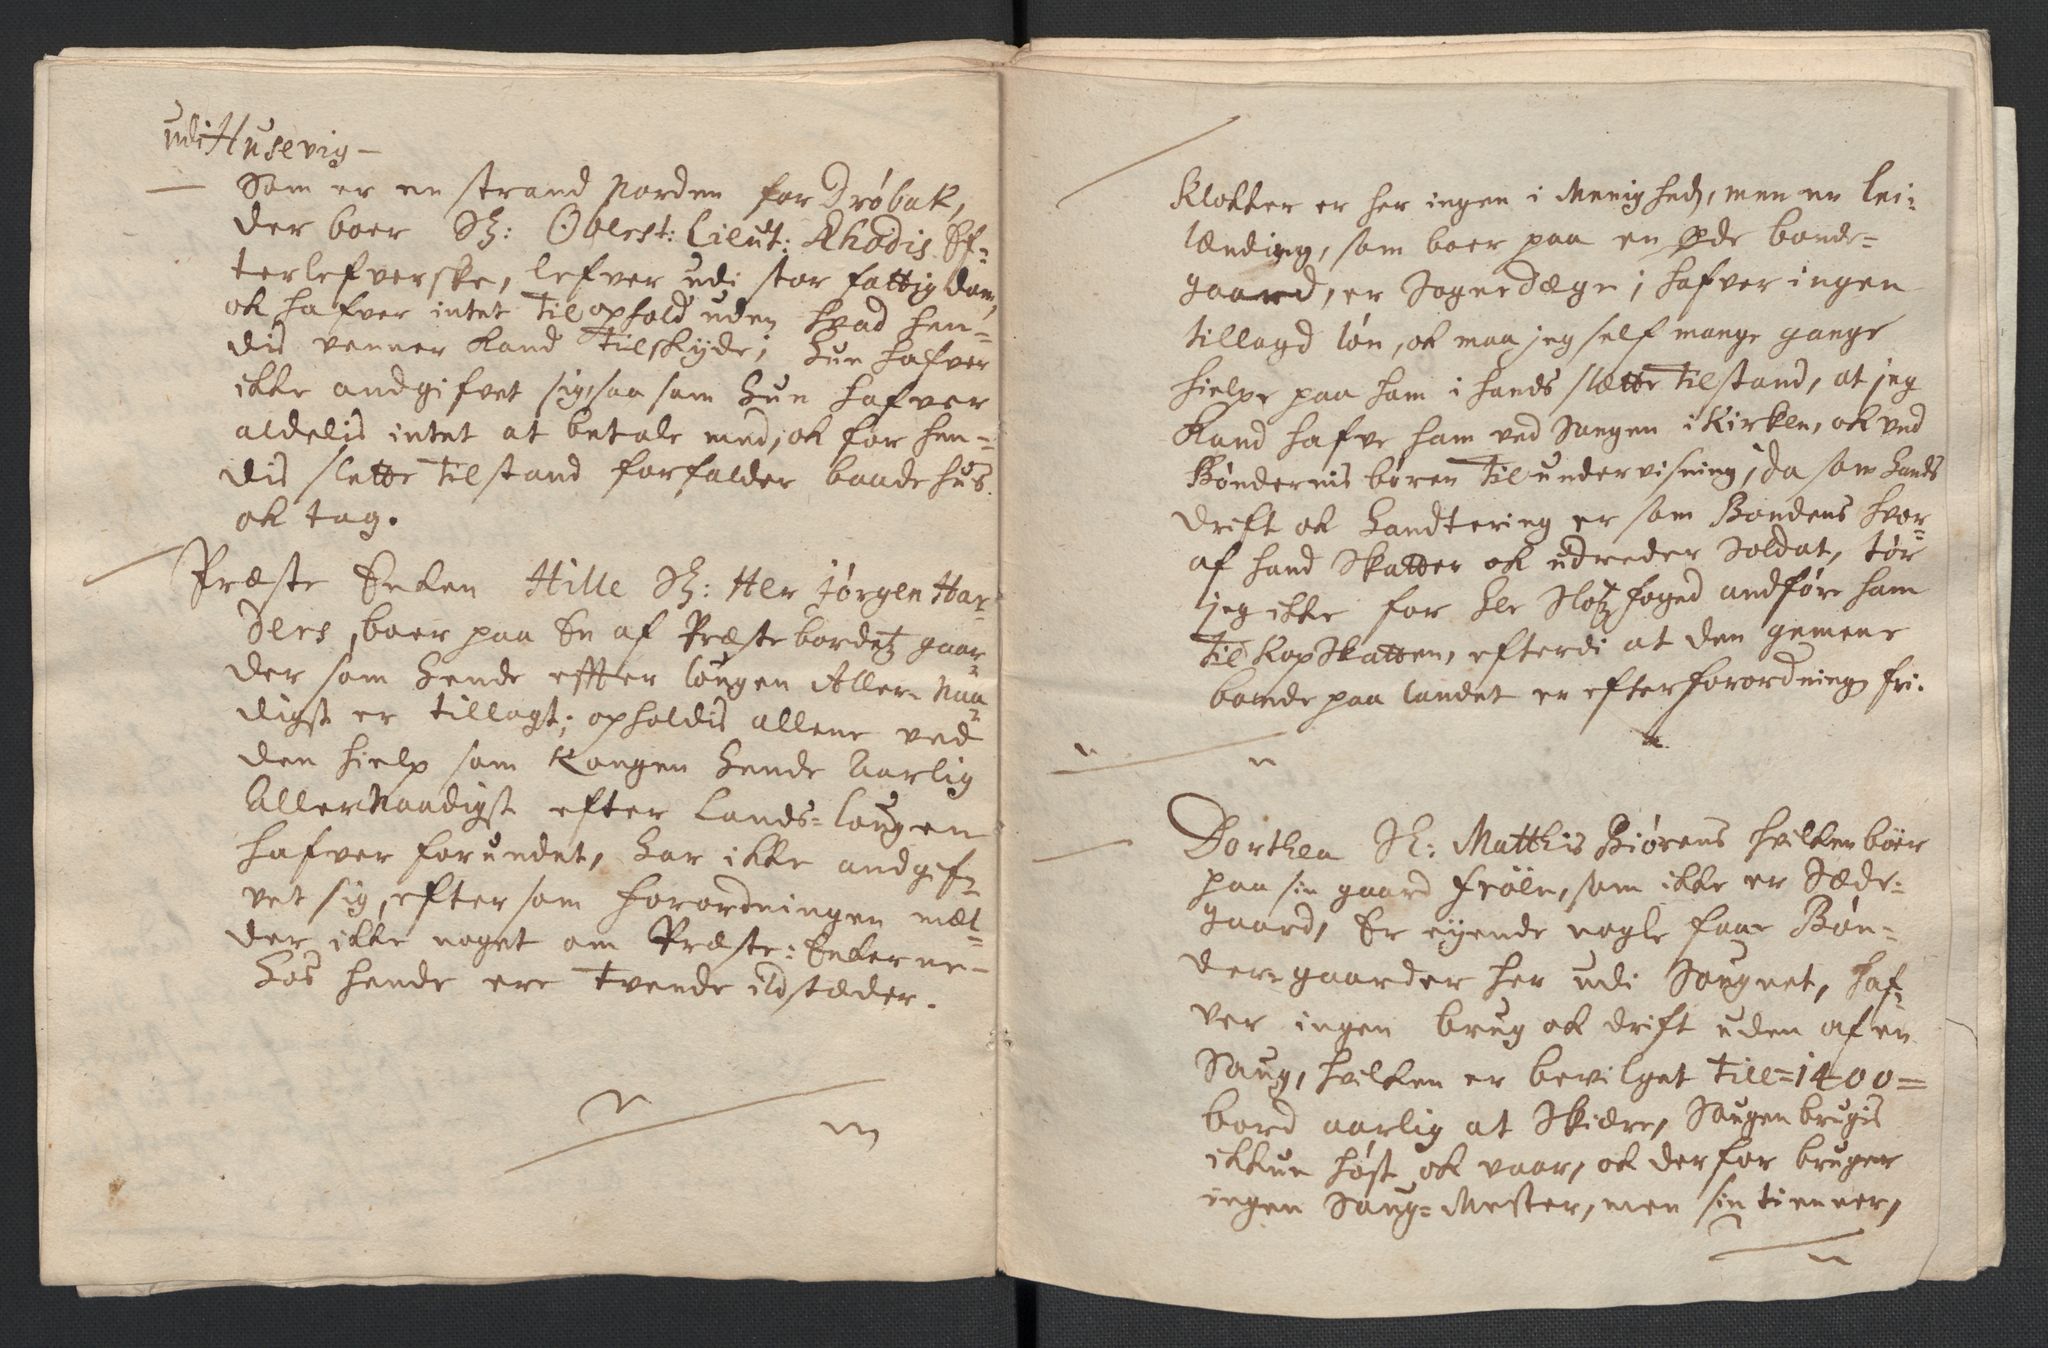 udi Husevig –
Som er en strand Norden for Drøbak,
der boer Sl: Oberst: Lieut: Rhodis Ef-
terlefverske, lefver udi stor fattigdom,
ok hafver intet til ophold uden hvad hen-
dis venner kand tilskyde; hun hafver
ikke andgifvet sig, saa som hun hafver
aldelis intet at betale med, ok for hen-
dis slette tilstand forfalder baade hus
ok tag.
Præste Enken Hille Sl: Her Jørgen Har-
ders, boer paa En af Præstebordetz gaar-
der som hende effter lougen Aller-Naa-
digst er tillagt; opholdis allene ved
den hielp som Kongen hende Aarlig
AllerNaadigst efter Lands-lougen
hafver forundet, har ikke andgif-
vet sig, eftersom forordningen mel-
der ikke noget om Præste-Enkerne-
hos hende ere tvende ildstæder.
Klokker er her ingen i Menighed, men en lei-
lænding, som boer paa en Øde bonde-
gaard, er Sognedægn; hafver ingen
tillagd løn, ok maa jeg self mange gange
hielpe paa ham i hands slætte tilstand, at jeg
kand hafve ham ved Sangen i Kirken, ok ved
Bøndernis børen til undervisning; da som hands
drift ok handtering er som Bondens hvor-
af hand Skatter ok udreder Soldat, tør
jeg ikke for hr Slotzfoged andføre ham
til KopSkatten, efterdi at den gemene
bonde paa landet er efter forordning fri.
Dorthea Sl: Matthis Biørens hvilken boer
paa sin gaard Frölen, som ikke er Sæde-
gaard, Er eyende nogle faae Bøn-
der-gaarder her udi Sougnet, haf-
ver ingen brug ok drift uden af en
Saug, hvilken er bevilget till=1400=
bord aarlig at Skiære, Saugen brugis
ikkun høst ok vaar, ok derfor bruger
ingen Saug-Mester, men sin tienner,